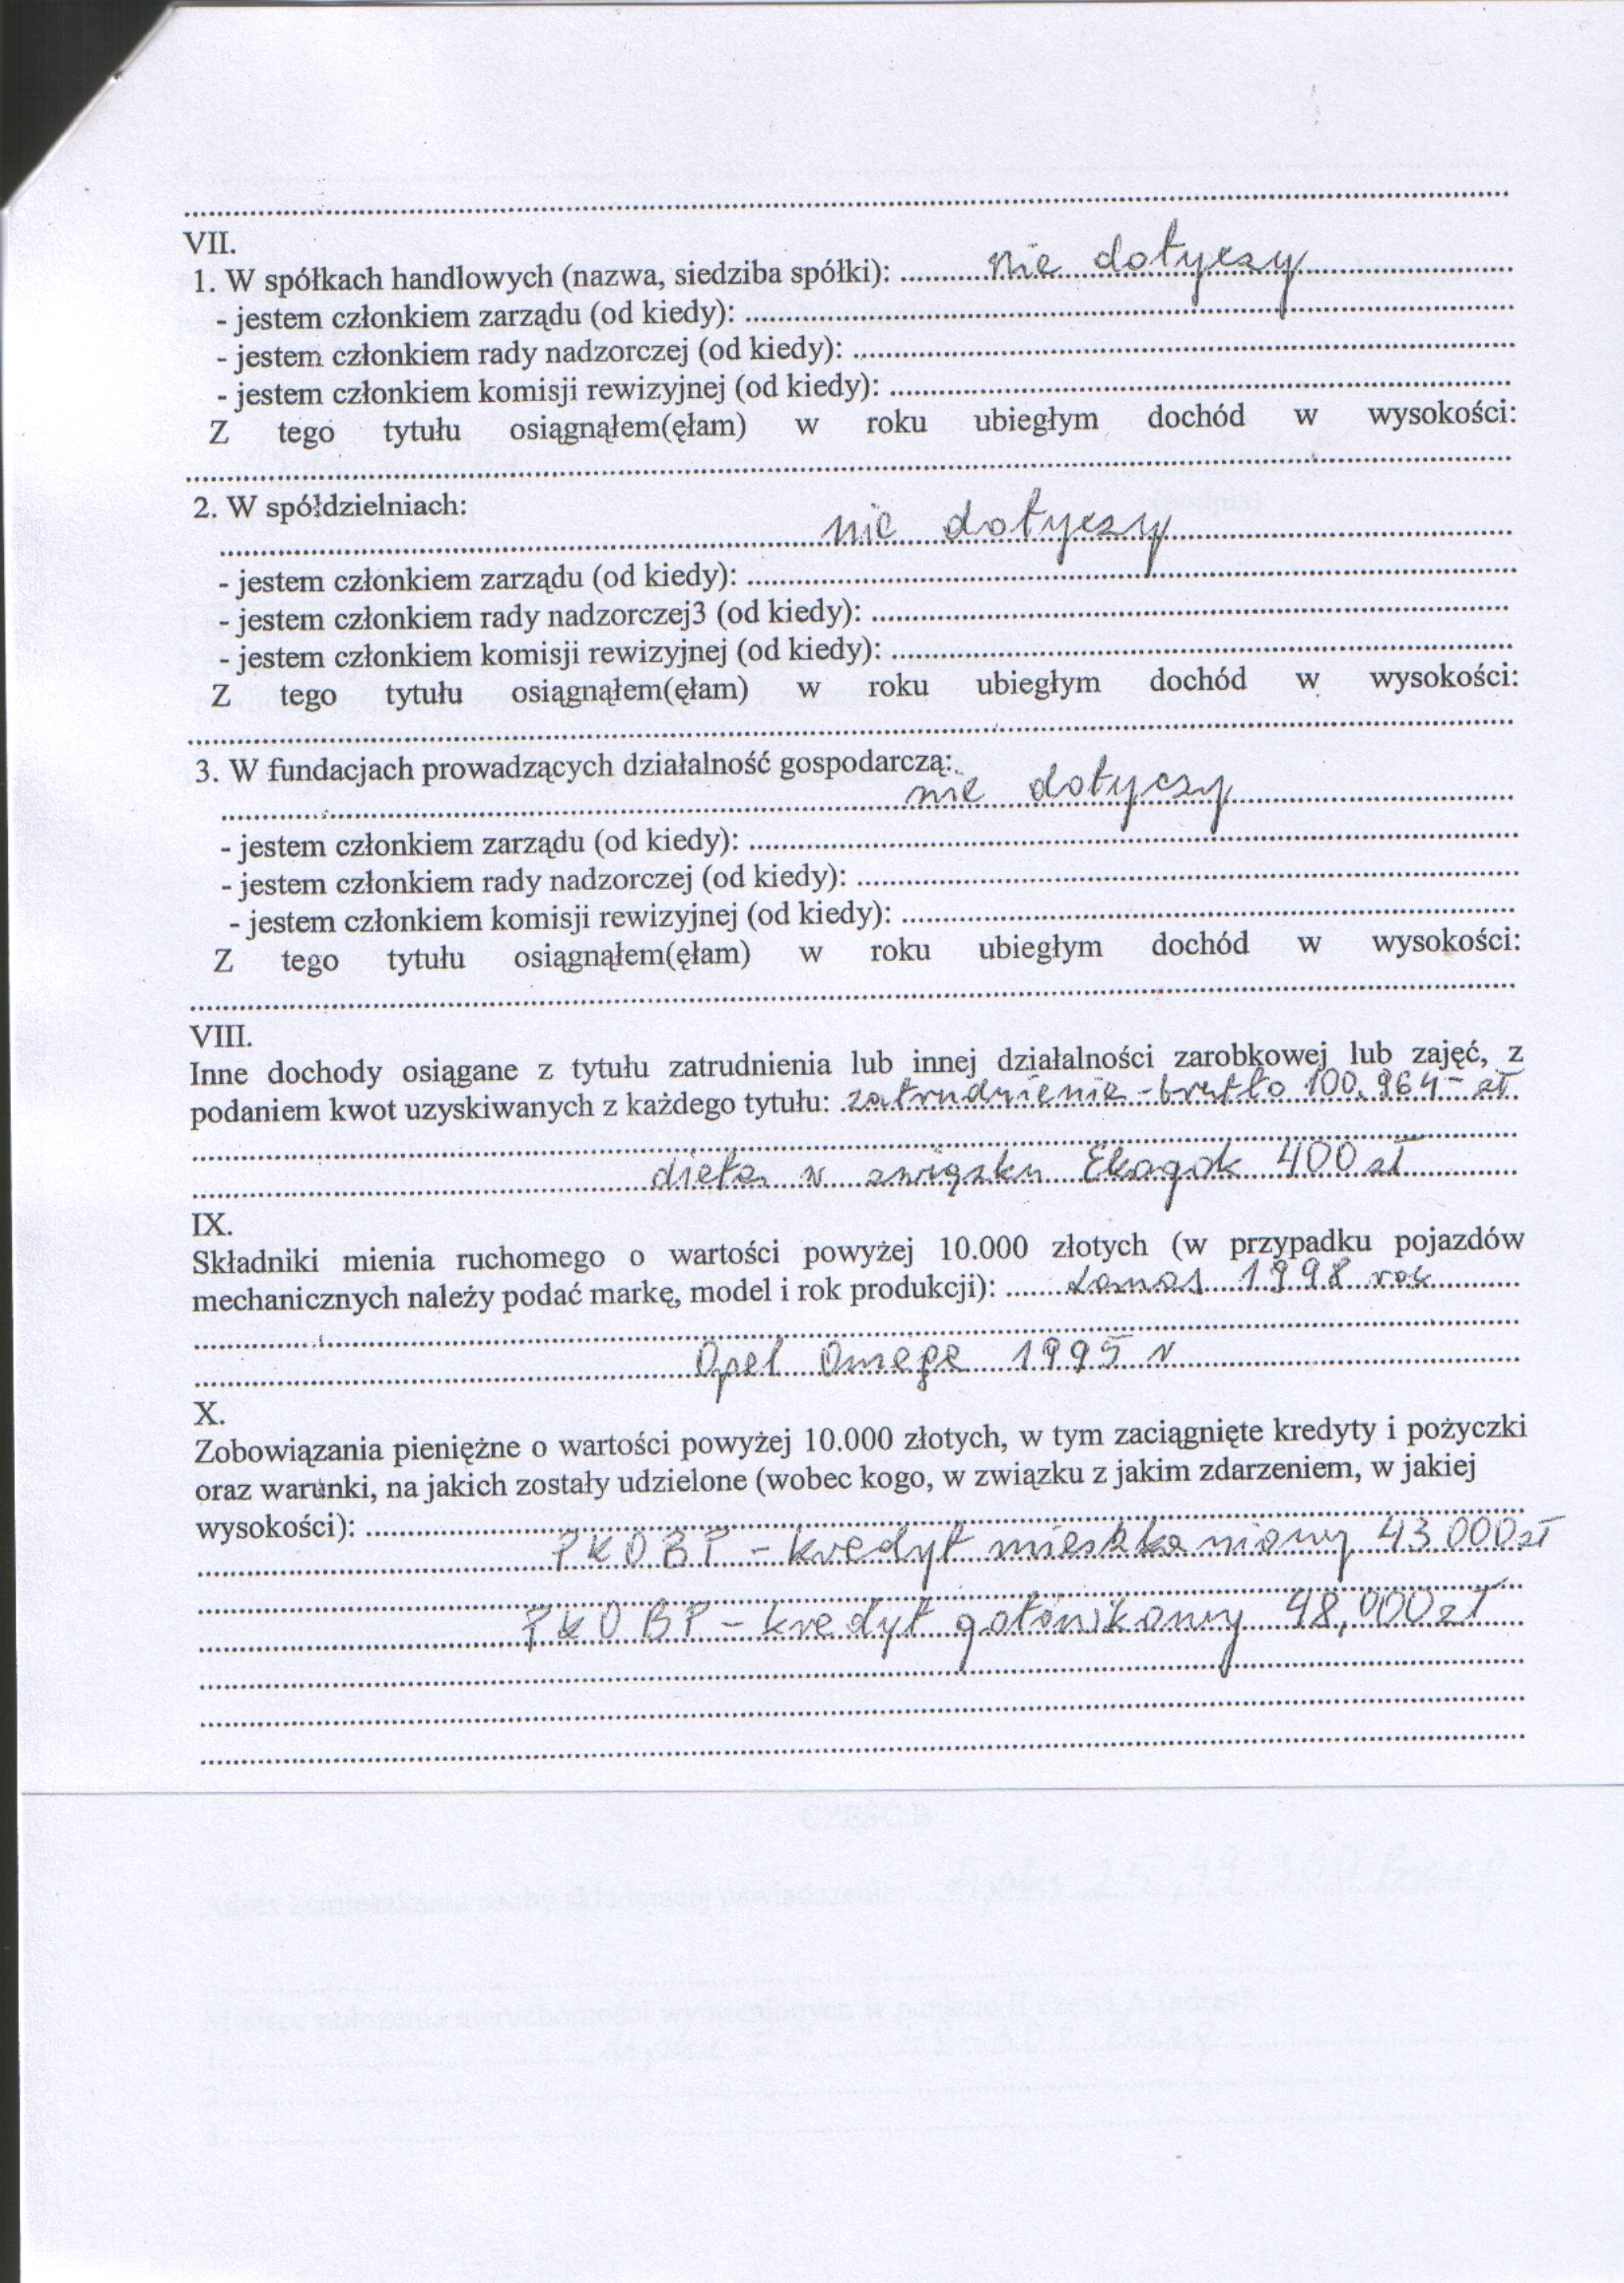 VII.
1. W spółkach handlowych (nazwa, siedziba spółki): nie dotyczy
- jestem członkiem zarządu (od kiedy):
- jestem członkiem rady nadzorczej (od kiedy):
- jestem członkiem komisji rewizyjnej (od kiedy):
Z tego tytułu osiągnąłem(ęłam) w roku ubiegłym dochód w wysokości:
2. W spółdzielniach:
nie dotyczy
- jestem członkiem zarządu (od kiedy):
- jestem członkiem rady nadzorczej3 (od kiedy):
- jestem członkiem komisji rewizyjnej (od kiedy):
Z tego tytułu osiągnąłem(ęłam) w roku ubiegłym dochód w wysokości:
3. W fundacjach prowadzących działalność gospodarczą:
nie dotyczy
- jestem członkiem zarządu (od kiedy):
- jestem członkiem rady nadzorczej (od kiedy):
- jestem członkiem komisji rewizyjnej (od kiedy):
Z tego tytułu osiągnąłem(ęłam) w roku ubiegłym dochód w wysokości:
VIII.
Inne dochody osiągane z tytułu zatrudnienia lub innej działalności zarobkowej lub zajęć, z
podaniem kwot uzyskiwanych z każdego tytułu: zatrudnienie - brutto 100.964 - zł
dieta w związku Ekogok 400 zł
IX.
Składniki mienia ruchomego o wartości powyżej 10.000 złotych (w przypadku pojazdów
mechanicznych należy podać markę, model i rok produkcji): Lanos 1998 rok
Opel Omega 1995 r
X.
Zobowiązania pieniężne o wartości powyżej 10.000 złotych, w tym zaciągnięte kredyty i pożyczki
oraz warunki, na jakich zostały udzielone (wobec kogo, w związku z jakim zdarzeniem, w jakiej
wysokości):
PKO BP - kredyt mieszkaniowy 43.000 zł
PKO BP - kredyt gotówkowy 48,000 zł